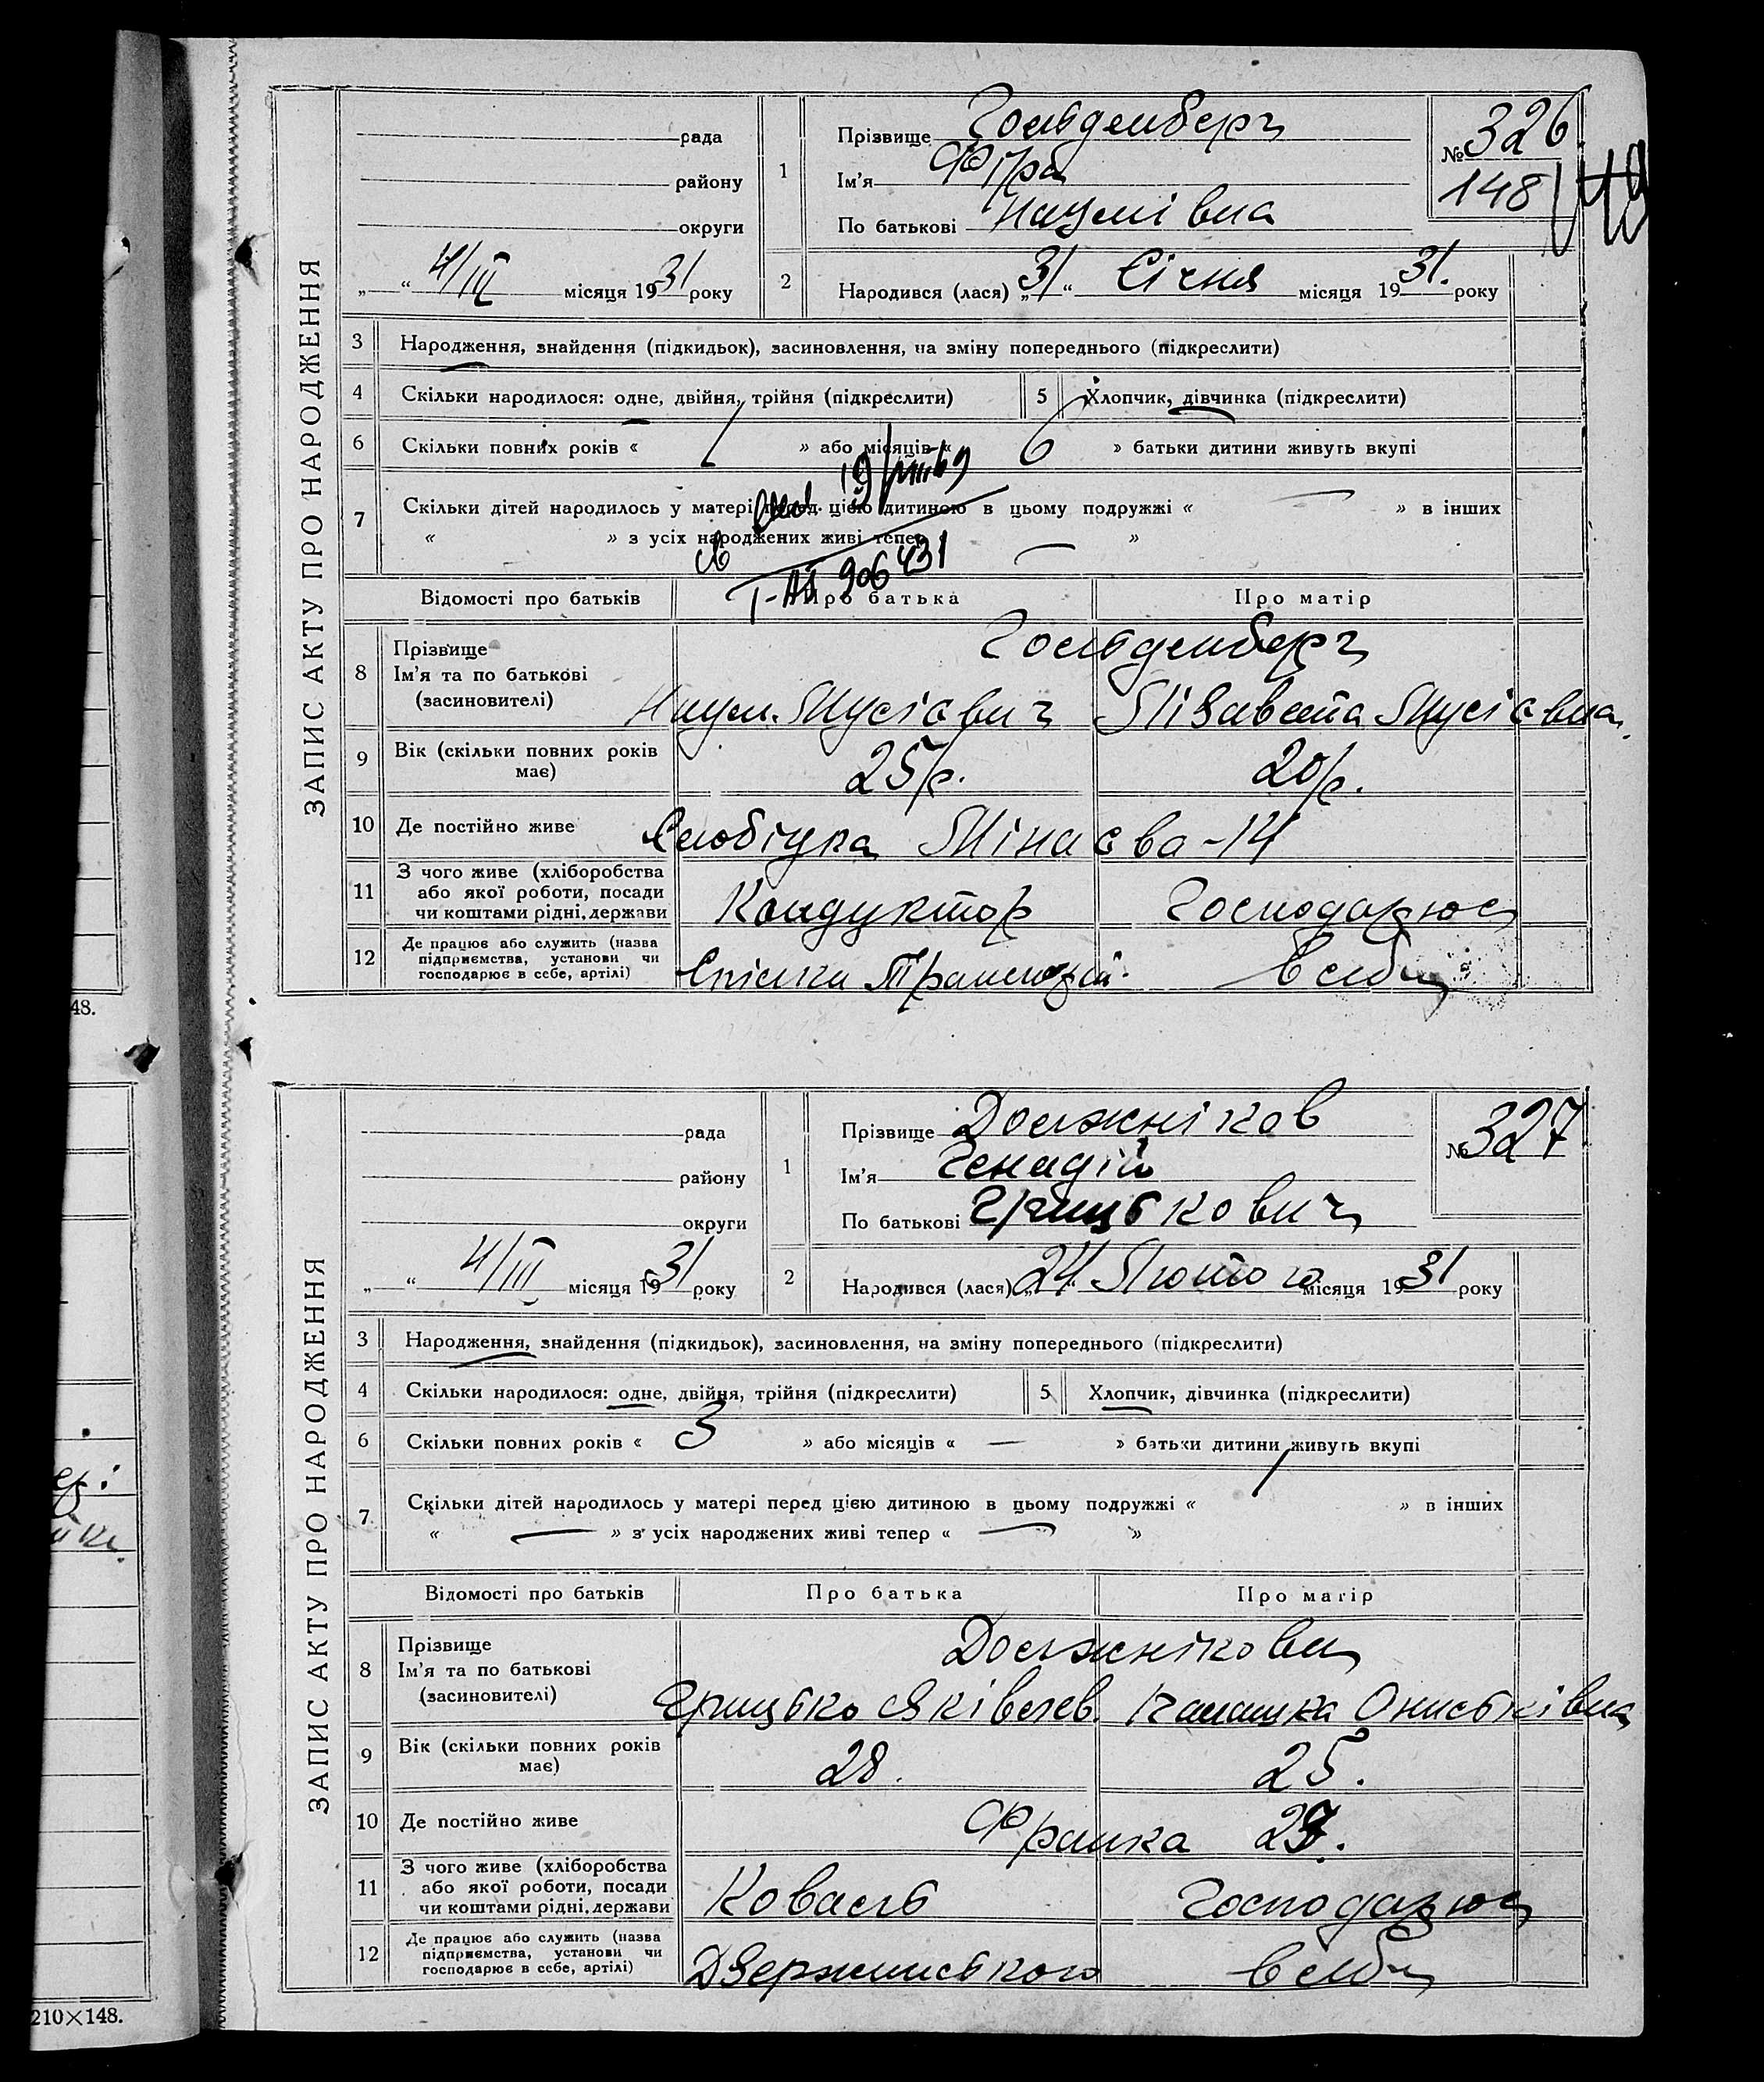 ЗАПИС АКТУ ПРО НАРОДЖЕННЯ
рада
району
округи
„ “ 4/III місяця 1931 року
1
Прізвище Гольденберг
Ім’я Фіра
По батькові Наумівна
№ 326
148
2
Народився (лася) „31“ Січня місяця 1931. року
3 Народження, знайдення (підкидьок), засиновлення, на зміну попереднього (підкреслити)
4 Скільки народилося: одне, двійня, трійня (підкреслити)
5 Хлопчик, дівчинка (підкреслити)
6 Скільки повних років « 1 » або місяців « 6 » батьки дитини живуть вкупі
7 Скільки дітей народилось у матері перед цією дитиною в цьому подружжі « — » в інших
« » з усіх народжених живі тепер — »
I-АЯ 906431
Відомості про батьків Про батька Про матір
8 Прізвище
Ім’я та по батькові
(засиновителі)
Гольденберг
Наум. Мусієвич Лізавета Мусієвна
9 Вік (скільки повних років
має)
25 р. 20 р.
10 Де постійно живе Слобідка Мінаєва-14
11 З чого живе (хліборобства
або якої роботи, посади
чи коштами рідні, держави
Кондуктор Господарює
12 Де працює або служить (назва
підприємства, установи чи
господарює в себе, артілі)
Спілки в себе
48.
ЗАПИС АКТУ ПРО НАРОДЖЕННЯ
рада
району
округи
„ “ 4/III місяця 1931 року
1
Прізвище Должніков
Ім’я Генадій
По батькові Грицькович
№ 327
2
Народився (лася) „24“ Лютого місяця 1931 року
3 Народження, знайдення (підкидьок), засиновлення, на зміну попереднього (підкреслити)
4 Скільки народилося: одне, двійня, трійня (підкреслити)
5 Хлопчик, дівчинка (підкреслити)
6 Скільки повних років « 3 » або місяців « — » батьки дитини живуть вкупі
7 Скільки дітей народилось у матері перед цією дитиною в цьому подружжі « 1 » в інших
« — » з усіх народжених живі тепер « — »
Відомості про батьків Про батька Про матір
8 Прізвище
Ім’я та по батькові
(засиновителі)
Должнікови
Грицько Яківлев. Ониськівна
9 Вік (скільки повних років
має)
28. 25.
10 Де постійно живе Франка
11 З чого живе (хліборобства
або якої роботи, посади
чи коштами рідні, держави
Коваль Господарює
12 Де працює або служить (назва
підприємства, установи чи
господарює в себе, артілі)
Дзержинського в себе
210×148.